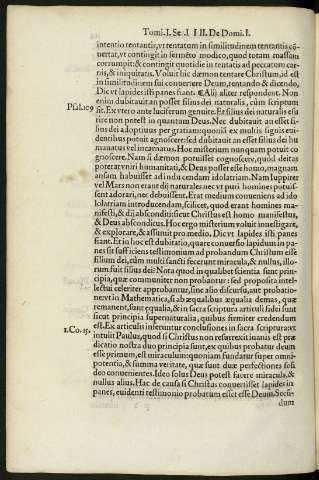 Tomi.I. Se. I I II. De Domi. I.
intentio tentantis, vt tentatum in similitudinem tentantis cō
uertat, vt contingit in fermēto modico, quod totam massam
corrumpit: & contingit quotidie in tentatis ad peccatum car-
nis, & iniquitatis. Voluit hic dæmon tentare Christum, id est
in similitudinem sui conuertere Deum, tentando, & dicendo,
Dic vt lapides isti panes fiant. ¶Alij aliter respondent. Non
enim dubitauit an posset filius dei naturalis, cùm scriptum
Psal.109
sit. Ex vtero ante luciferum genui te. Et filius dei naturalis es-
se non potest in quantum Deus. Nec dubitauit an esset fi-
lius dei adoptiuus per gratiam: quoniā ex multis signis eui-
dentibus potuit agnoscere: sed dubitauit an esset filius dei hu-
manatus vel incarnatus. Hoc misterium nunquam potuit co
gnoscere. Nam si dæmon potuisset cognoscere, quod deitas
poterat vniri humanitati, & Deus posset esse homo, magnam
ansam habuisset ad inducendam idolatriam. Nam Iuppiter
vel Mars non erant dij naturales nec vt puri homines potuis-
sent adorari, nec debuissent. Erat medium conueniens ad ido
lolatriam introducendam, scilicet, quod erant homines ma-
nifesti, & dij absconditi: sicut Christus est homo manifestus,
& Deus absconditus. Hoc ergo misterium voluit inuestigare,
& explorare, & assumit pro medio. Dic vt lapides isti panes
fiant. Et in hoc est dubitatio, quare conuerso lapidum in pa-
nes sit sufficiens testimonium ad probandum Christum esse
filium dei, cùm multi sancti fecerunt miracula, & nullus, illo-
rum fuit filius dei: Nota quod in qualibet scientia sunt prin-
cipia, quæ communiter non probantur: sed proposita intel-
lectui celeriter approbantur, sine alio discursu, aut probatio-
ne: vt in Mathematica, si ab æqualibus æqualia demas, quæ
remanent, sunt equalia, & in sacra scriptura articuli fidei sunt
sicut principia supernaturalia, quibus firmiter credendum
est. Ex articulis inferuntur conclusiones in sacra scriptura: vt
1.Co.15.
intulit Paulus, quod si Christus non resurrexit inanis est præ
dicatio nostra duo principia sunt, ex quibus probatur deum
esse primum, est miraculum: quoniam fundatur super omni-
potentia, & summa veritate, quæ sunt duæ perfectiones so-
li deo conuenientes. Ideo solus Deus potest facere miracula, &
nullus alius. Hac de causa si Christus conuertisset lapides in
panes, euidenti testimonio probatum esset esse Deum. Secū-
dum